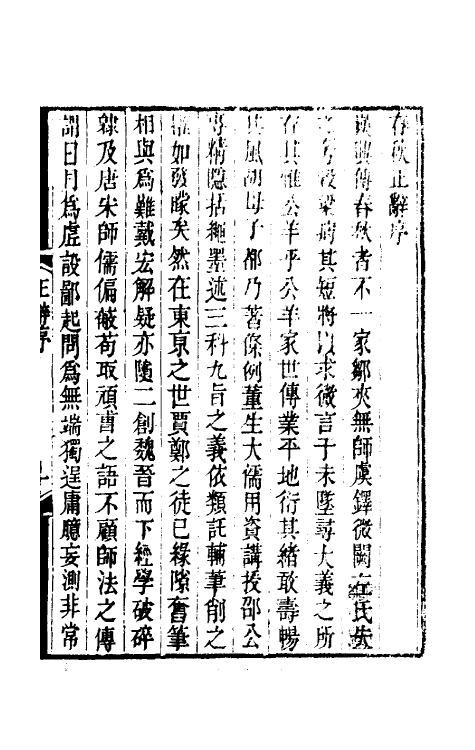 春秋正辭序
漢興傳春秋者不一家鄒夾無師虞鐸微闕左氏失
之誣穀梁病其短將以求微言于未墜尋大義之所
存其惟公羊乎公羊家世傳業平地衍其緒敢壽暢
其風胡母子都乃著條例董生大儒用資講授邵公
專精隱括繩墨述三科九旨之義依類託輔筆削之
如發矇矣然在東京之世賈鄭之徒已緣隙奮筆
相與爲難戴宏解疑亦隨二創魏晉而下經學破碎
及唐宋師儒偏敧苟取頑曹之語不顧師法之傳
謂日月爲虛設鄙起問爲無端獨逞庸臆妄測非常
正辭序
一